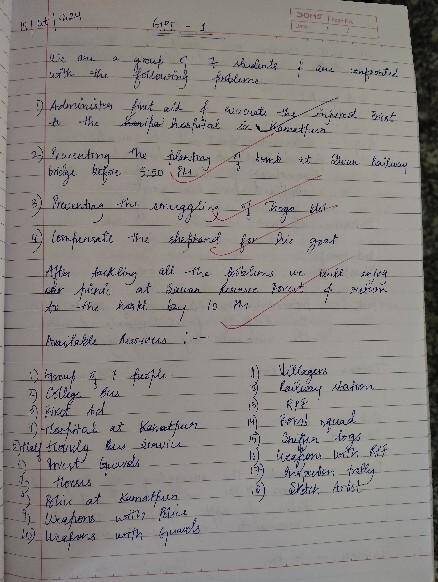 GPE - 1
We are a group of 7 students & are confronted
with the following problems
1) Administer first aid & evacuate the injured
to the hospital in Kamatpur
2) Preventing the planting of bomb at Railway
bridge before 5:30 PM
3) Preventing the smuggling of
4) Compensate the shephard for his goat
After tackling all the problems we will enjoy
our picnic at Reserve Forest & return
to the by 10 PM
Available Resources :--
1) Group of 7 people
2) College Bus
3) First Aid
4) Hospital at Kamatpur
5) Half Hourly Bus Service
Forest Guards
Horses
8) Police at Kamatpur
9) Weapons with Police
10) Weapons with Guards
Villagers
Railway station
13) RPF
14) Bomb squad
15) Sniffer dogs
16) Weapons with RPF
17)
18) Sketch Artist